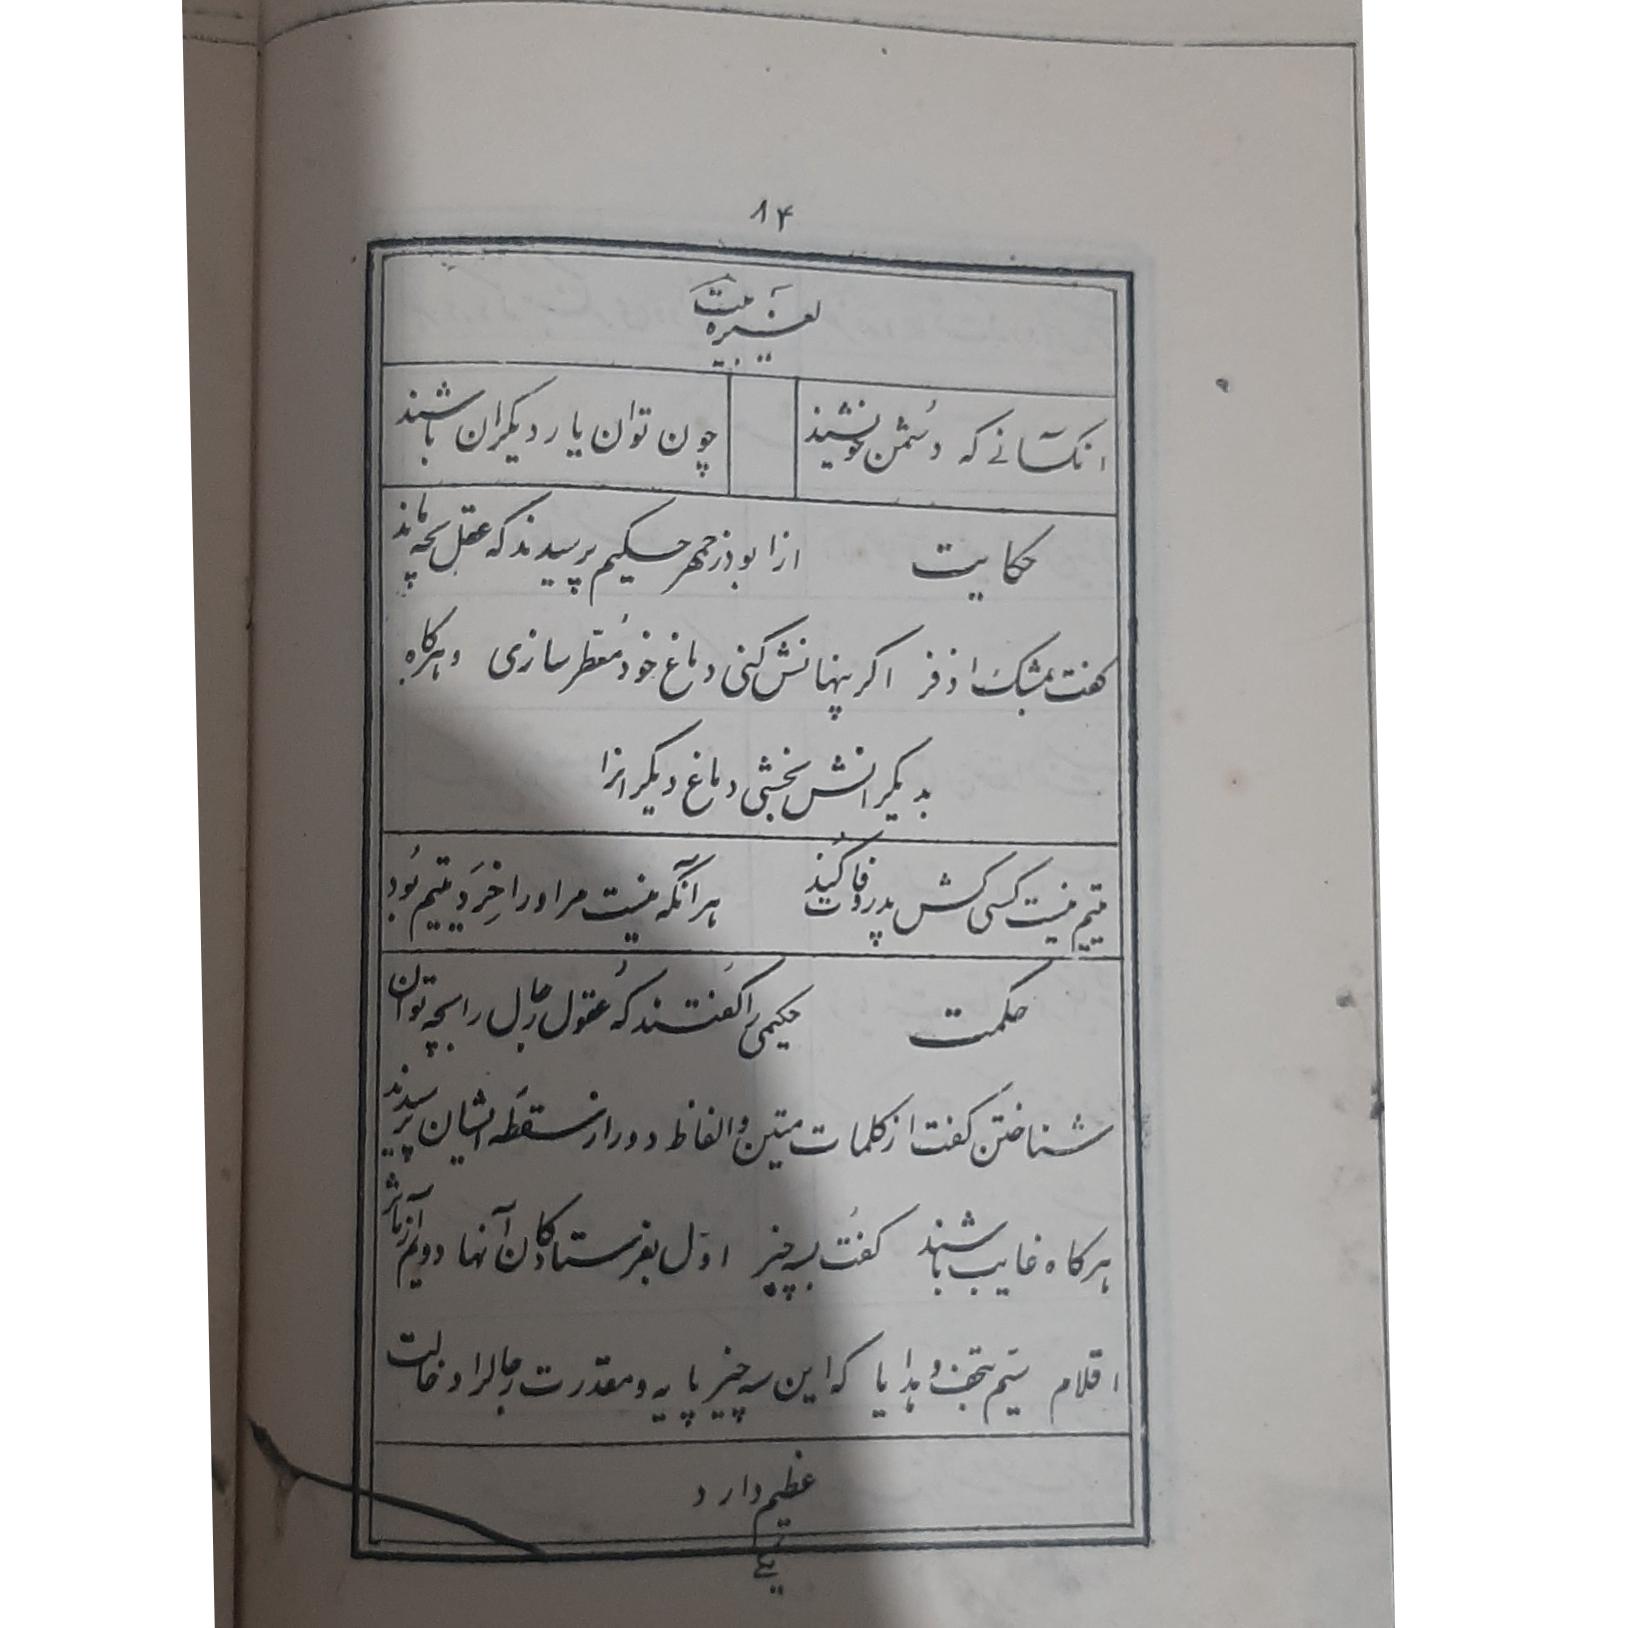 ۸۴
لغیره بیت
انکسانے که دُشمن خویشند چون توان یار دیکران باشند
حکایت ازا بوذرجمهر حکیم پرسیدند که عقل بچه ماند
کفت بمشک اذفر اکر پنهانش کنی دماغ خود مُعطر سازی وهرکاه
بدیکرانش بخشی دماغ دیکرانرا
یتیم نیست کسی کش پدر وفات کُند هرآنکه نیست مر اورا خِرَد یتیم بُود
حکمت حکیمی را کُفتند که عُقول رجال را بچه توان
شناختن کفت از کلمات متین و الفاظ دور از سقطه ایشان پرسیدند
هرکاه غایب باشند کفت بسه چیز اوّل بفرستادکان آنها دویم از آثار
اقلام سیّم بتحف و هدایا که این سه چیز پایه و مقدرت رجالرا دخالت
عظیم دارد
یکے